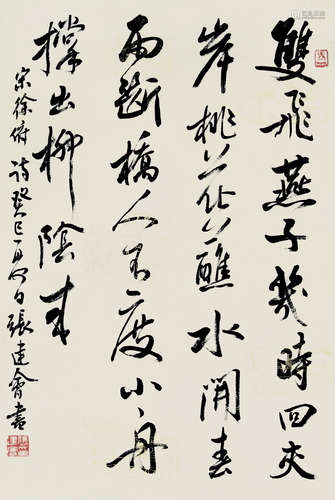 雙飛燕子幾時回夾
岸桃花蘸水開春
雨斷橋人不度小舟
撐出柳陰來
宋徐俯詩癸巳張建會書